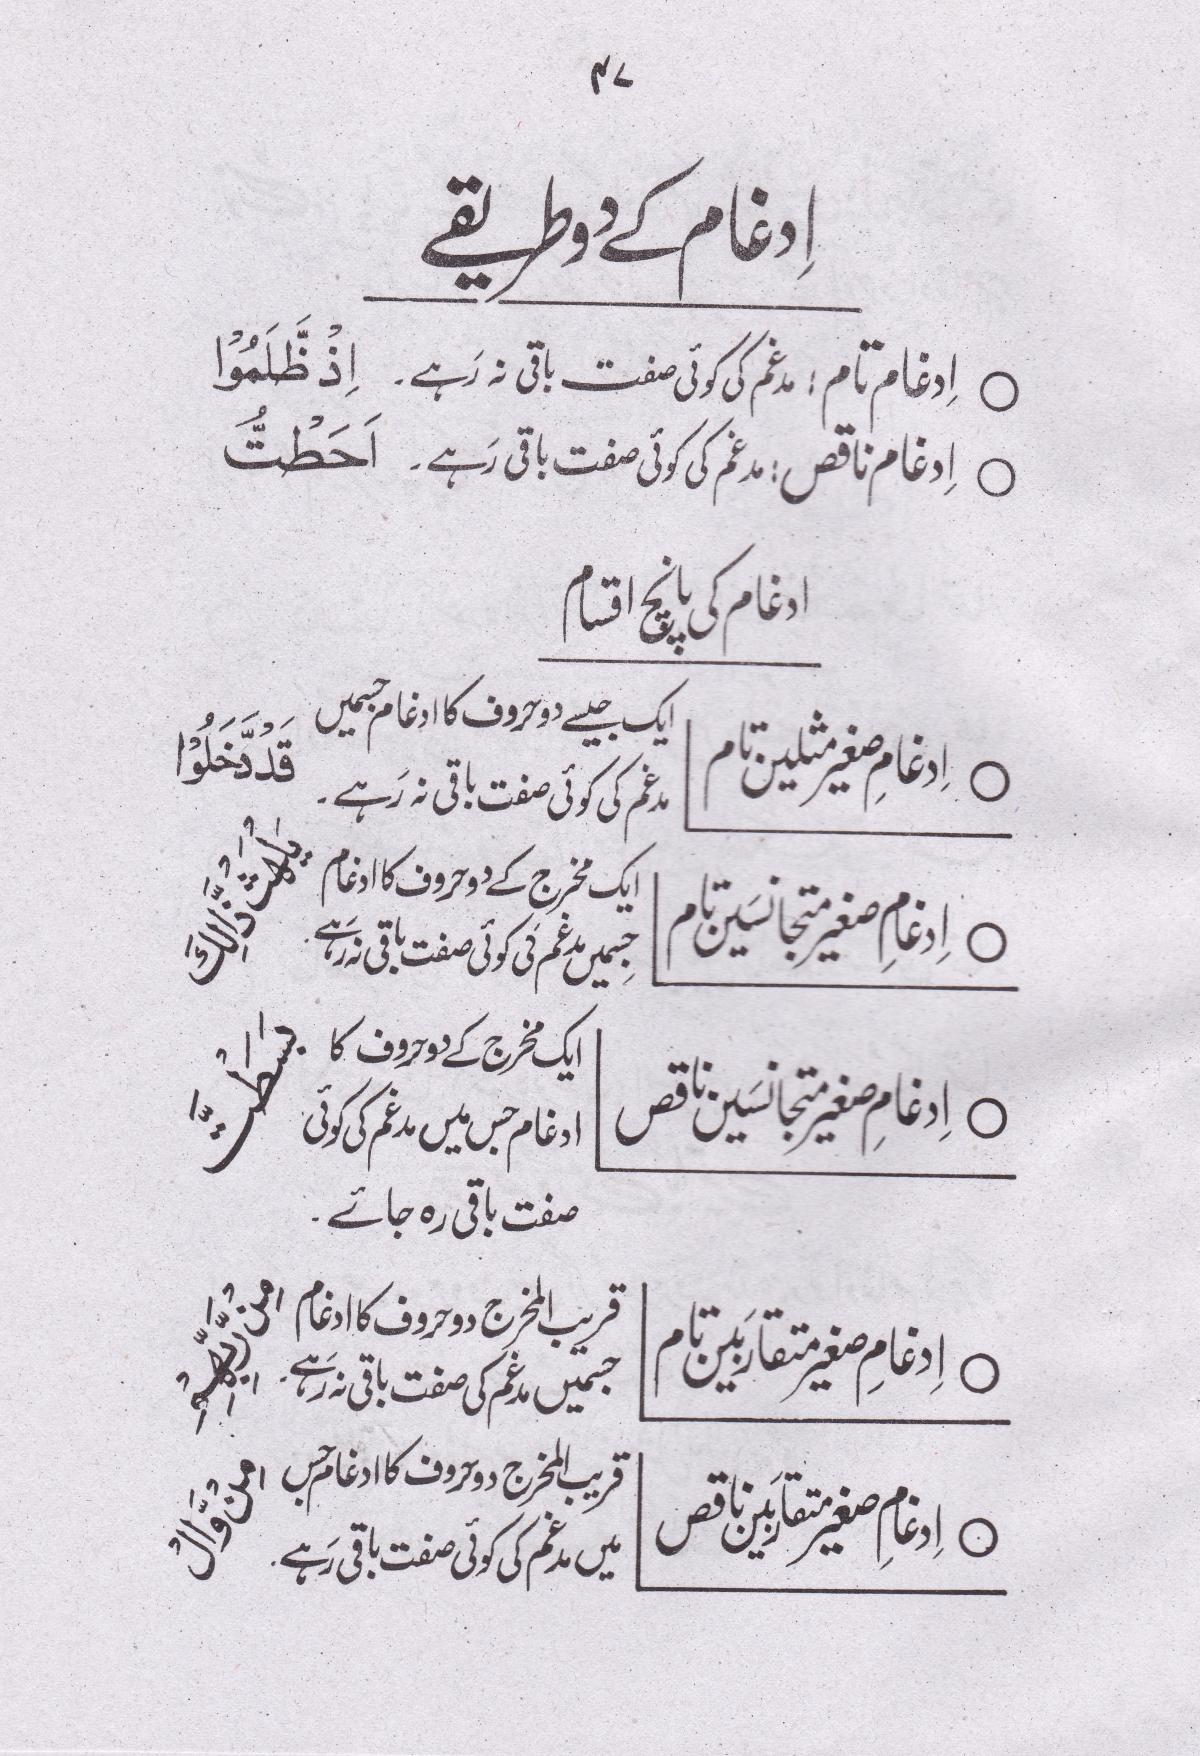 ۴۷
اِدغام کے دو طریقے
اِدغام تام : مدغم کی کوئی صفت باقی نہ رَہے۔ اِذْ ظَّلَمُوْا
اِدغام ناقص : مدغم کی کوئی صفت باقی رَہے۔ اَحَطْتُّ
ادغام کی پانچ اقسام
اِدغامِ صغیر مثلین تام
ایک جیسے دو حروف کا ادغام جسمیں
مدغم کی کوئی صفت باقی نہ رَہے۔
قَدْ دَّخَلُوْا
اِدغامِ صغیر متجانسَین تام
ایک مخرج کے دو حروف کا ادغام
جِسمیں مدغم کی کوئی صفت باقی نہ رَہے۔
یَلْهَثْ ذّٰلِكَ
اِدغامِ صغیر متجانسَین ناقص
ایک مخرج کے دو حروف کا
ادغام جس میں مدغم کی کوئی
صفت باقی رہ جائے۔
بَسَطْتَّ
اِدغامِ صغیر متقارَبَین تام
قریب المخرج دو حروف کا ادغام
جسمیں مدغم کی صفت باقی نہ رَہے۔
مِنْ رَّبِّهِمْ
اِدغامِ صغیر متقارَبَین ناقص
قریب المخرج دو حروف کا ادغام جس
میں مدغم کی کوئی صفت باقی رَہے۔
مِنْ وَّالٍ